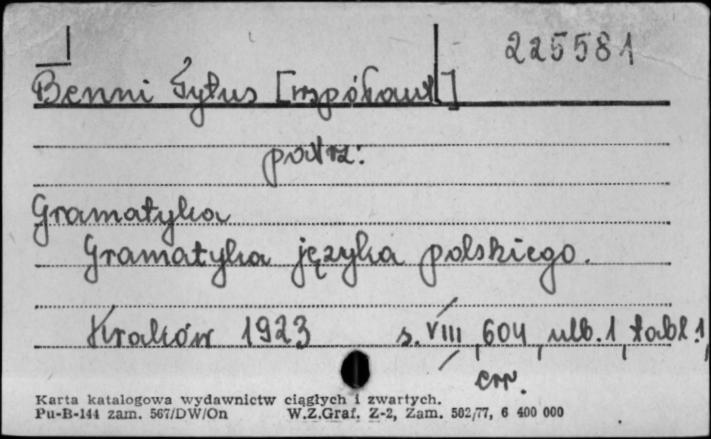 225581
Benni Tytus [współaut.]
patrz:
Gramatyka
Gramatyka języka polskiego.
Kraków 1923 s. VIII, 604, ulb. 1, tabl. 1,
err.
Karta katalogowa wydawnictw ciągłych i zwartych.
Pu-B-144 zam. 567/DW/On W.Z.Graf. Z-2, Zam. 502/77, 6 400 000